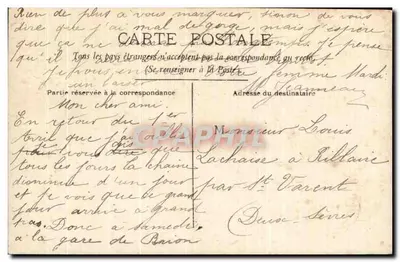 Rien de plus à vous marquer, sinon de vous
dire que j'ai mal de gorge mais j'espère
que ça ne
CARTE POSTALE
je pense
Tous les pays étrangers n'acceptent pas la correspondance au recto
(Se renseigner à la Poste)
femme Mardi
Partie réservée à la correspondance
Adresse du destinataire
Mon cher ami.
En retour du 1er
Avril que j'ai
vous que
tous les jours la chaîne
diminue d'un jour
et je vois que le grand
jour arrive à grand
pas. Donc à samedi
à la gare de
Monsieur Louis
Lachaise à
par St Varent
(Deux-Sèvres
CPARAMA